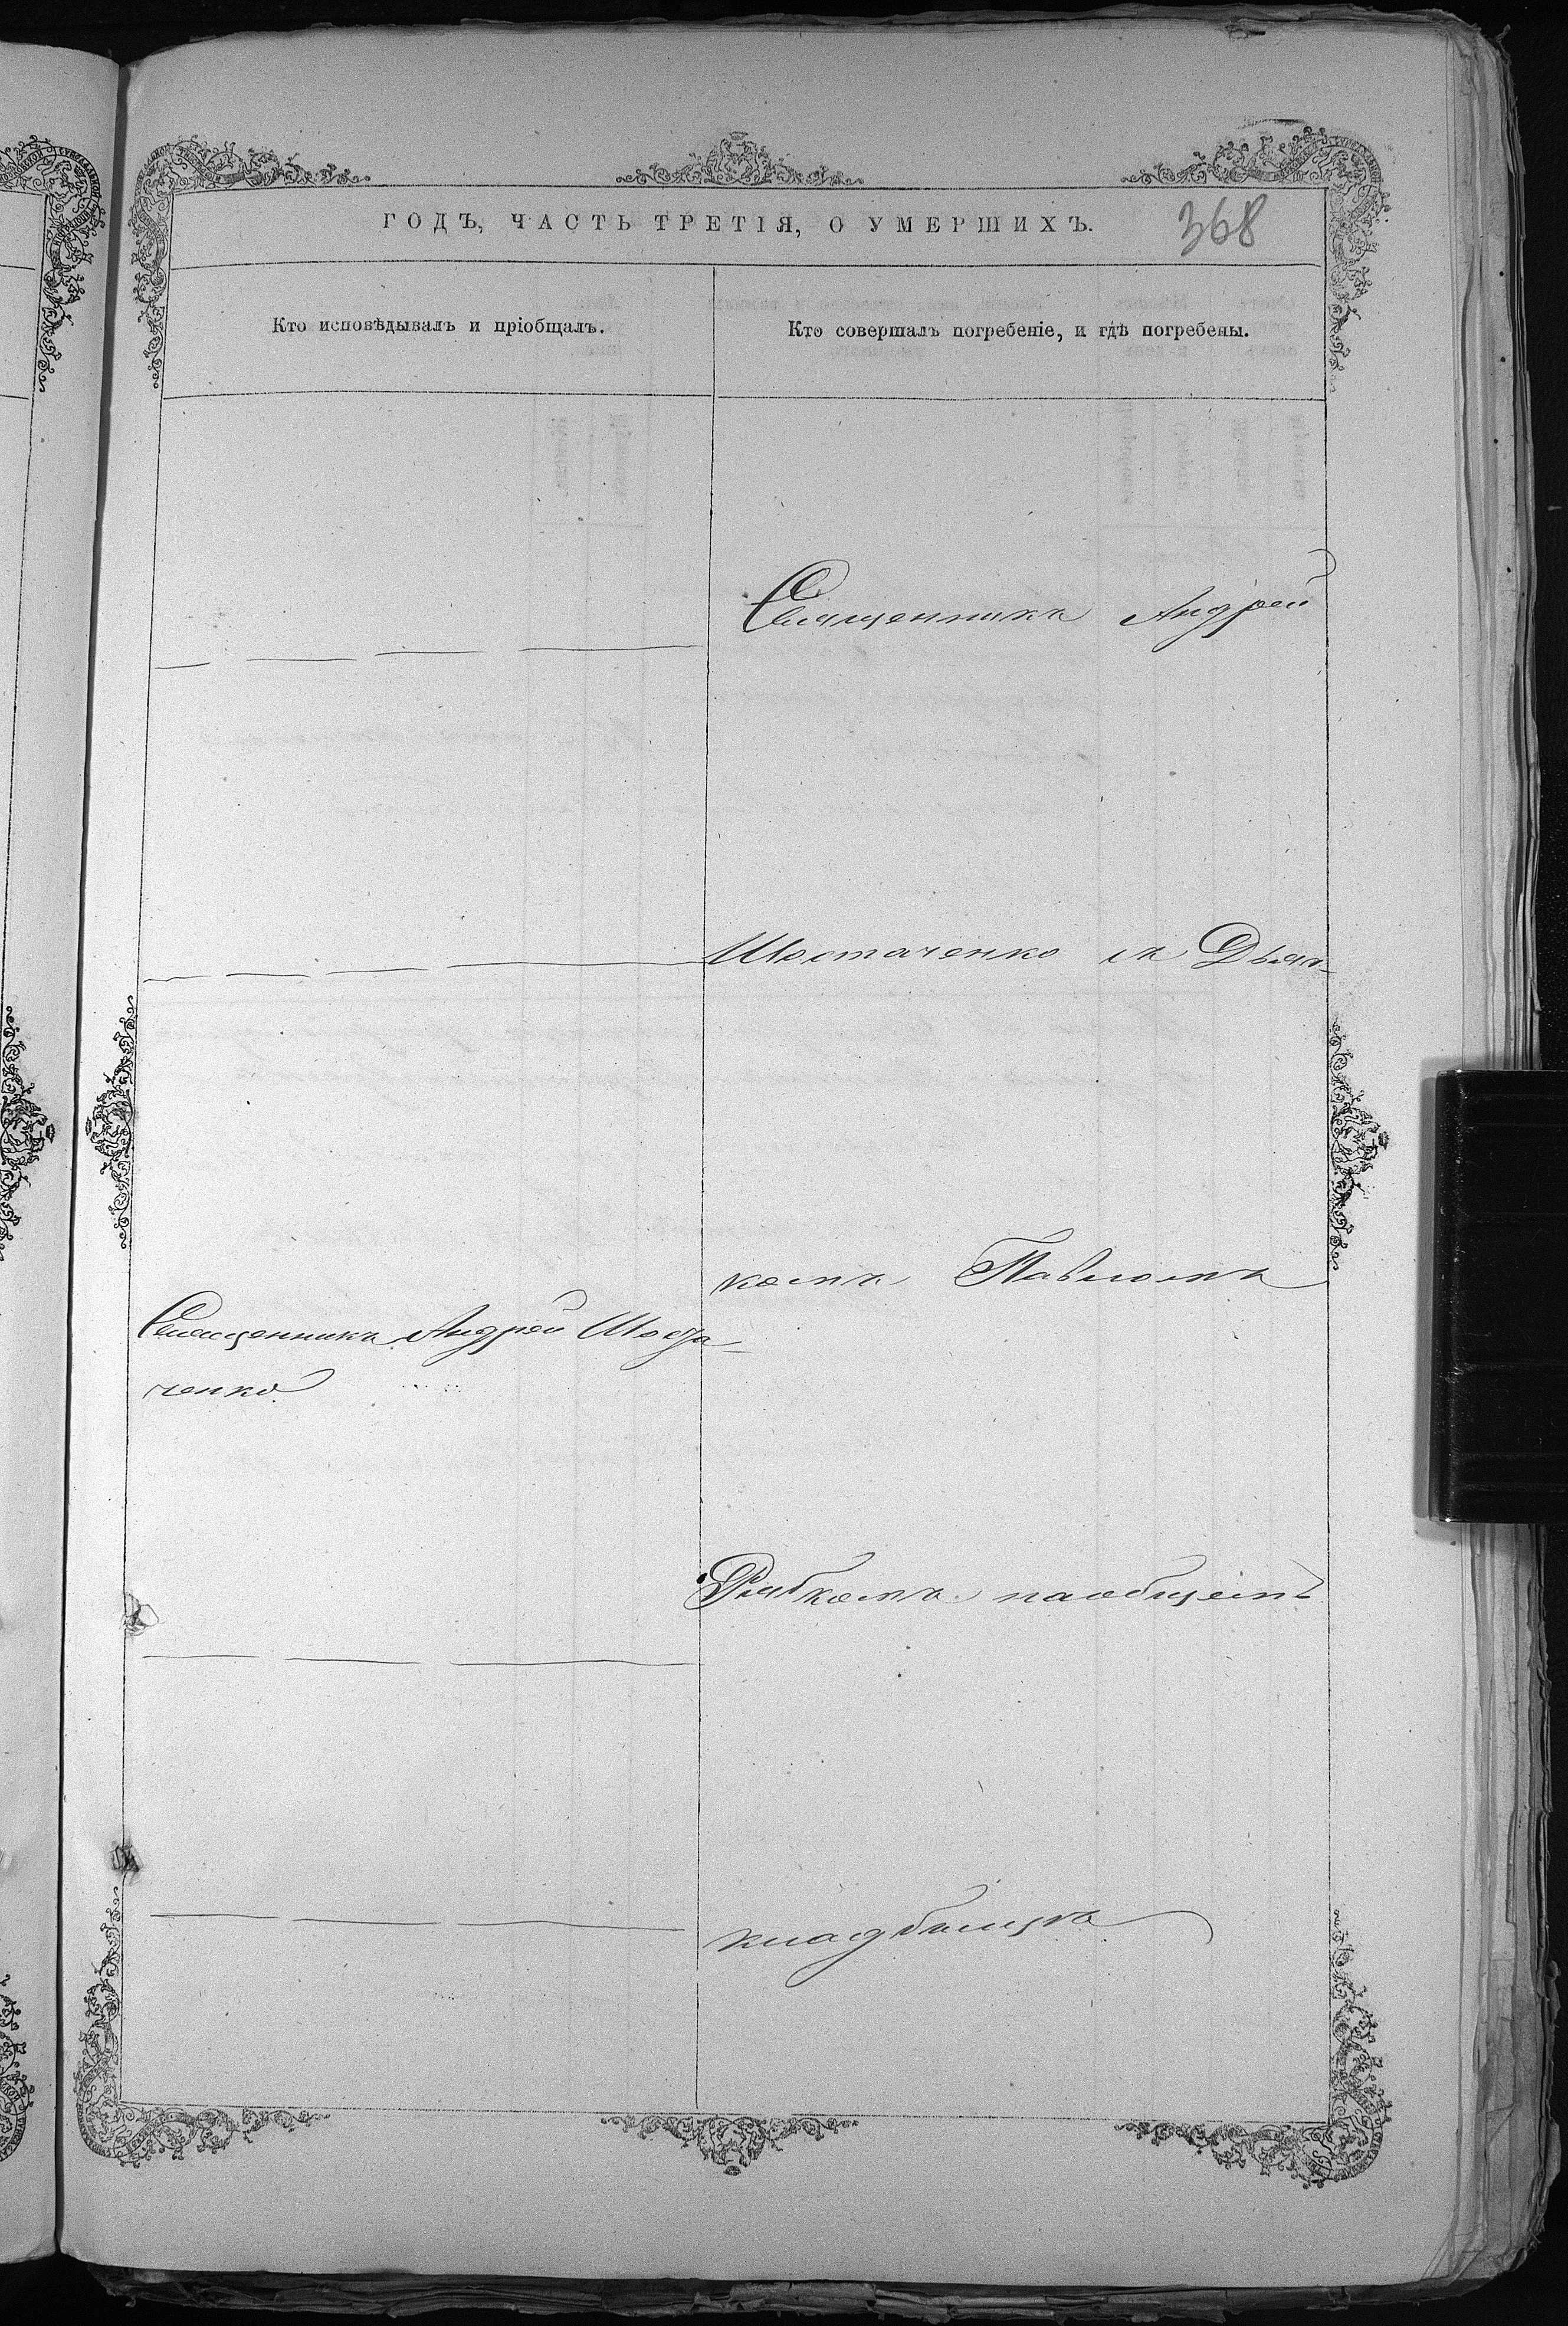 ГОДЪ, ЧАСТЬ ТРЕТІЯ, О УМЕРШИХЪ. 368
Кто исповѣдывалъ и пріобщалъ.
Кто совершалъ погребеніе, и гдѣ погребены.
Священникъ Андрей
Шостаченко съ Дьяч-
комъ Павломъ
Священникъ Андрей Шоста-
ченко
Рябкомъ на общемъ
кладбищѣ